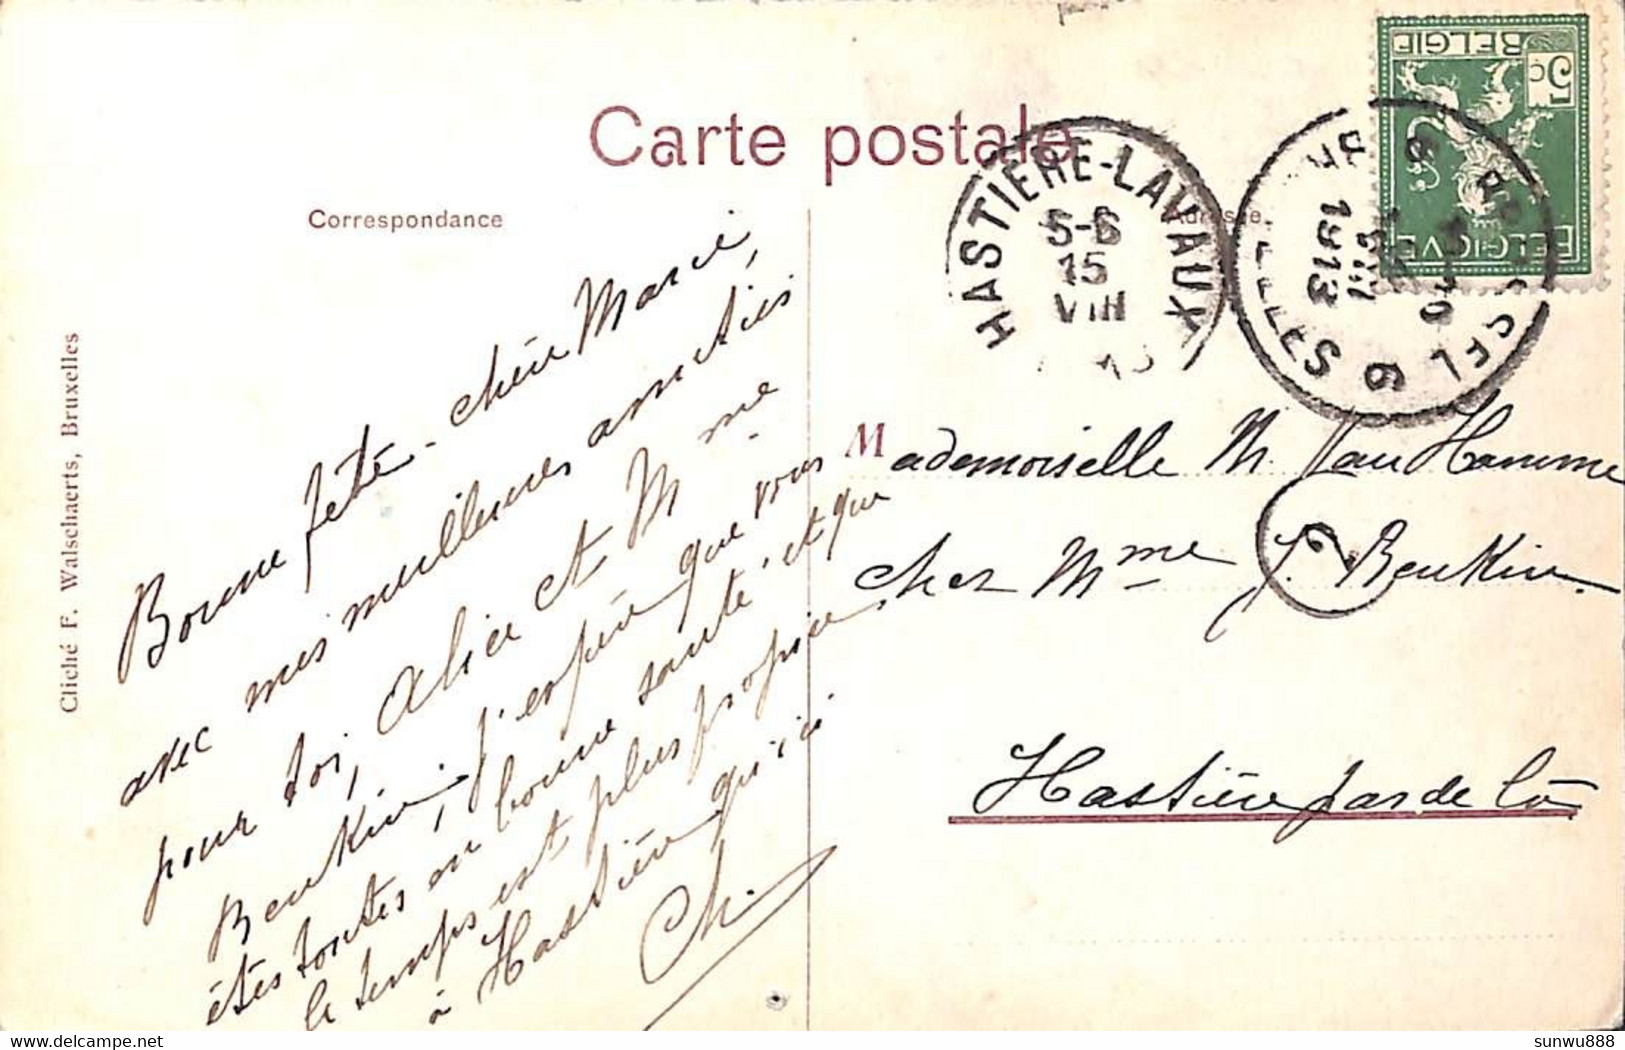 Carte postale
Correspondance
Adresse
Cliché F. Walschaerts, Bruxelles
BELGIË
5c
BELGIQUE
HASTIÈRE-LAVAUX
5-6
15
VIII
BRUSSEL 6
1913
BRUXELLES 6
2
Bonne fête chère Marie,
avec mes meilleures amitiés
pour toi, Alice et Mme
Beukin, j'espère que vous
êtes toutes en bonne santé et que
le temps est plus propice
à Hastière qu'ici
Ch.
Mademoiselle M. Van Hamme
chez Mme J. Beukin
Hastière par delà
sunwu888